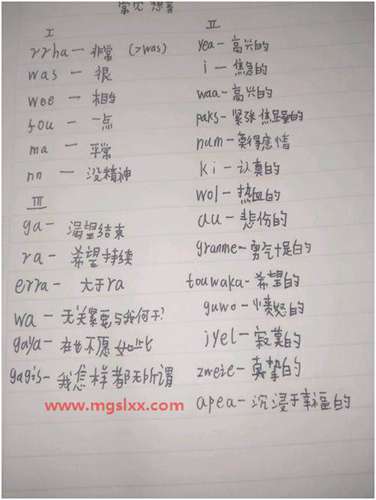 常见 想音
I
rrha — 非常 (>was)
was — 很
wee — 相当
fou — 一点
ma — 平常
nn — 没精神
III
ga - 渴望结束
ra - 希望持续
erra - 大于ra
wa - 无关紧要与我何干?
gaya - 在也不愿如此
gagis - 我怎样都无所谓
II
yea - 高兴的
i - 焦急的
waa - 高兴的
paks - 紧张焦的
num - 莫得感情
ki - 认真的
wol - 热血的
au - 悲伤的
granme - 勇气十足的
touwaka - 希望的
guwo - 愤怒的
jyel - 寂寞的
zweie - 真挚的
apea - 沉浸于幸福的
www.mgslxx.com